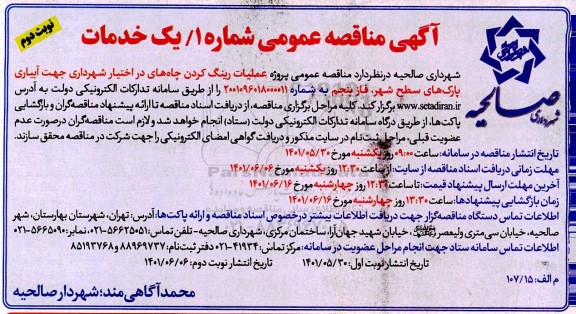 آگهی مناقصه عمومی شماره ۱/ یک خدمات
نوبت دوم
شهرداری صالحیه
شهرداری صالحیه در نظر دارد مناقصه عمومی پروژه عملیات رینگ کردن چاه‌های در اختیار شهرداری جهت آبیاری
پارک‌های سطح شهر، فاز پنجم به شماره ۲۰۰۱۰۹۶۰۱۸۰۰۰۰۱۱ را از طریق سامانه تدارکات الکترونیکی دولت به آدرس
www.setadiran.ir برگزار کند. کلیه مراحل برگزاری مناقصه، از دریافت اسناد مناقصه تا ارائه پیشنهاد مناقصه‌گران و بازگشایی
پاکت‌ها، از طریق درگاه سامانه تدارکات الکترونیکی دولت (ستاد) انجام خواهد شد و لازم است مناقصه‌گران درصورت عدم
عضویت قبلی، مراحل ثبت‌نام در سایت مذکور و دریافت گواهی امضای الکترونیکی را جهت شرکت در مناقصه محقق سازند.
تاریخ انتشار مناقصه در سامانه: ساعت ۰۹:۰۰ روز یکشنبه مورخ ۱۴۰۱/۰۵/۳۰
مهلت زمانی دریافت اسناد مناقصه از سایت: از ساعت ۱۲:۳۰ روز یکشنبه مورخ ۱۴۰۱/۰۶/۰۶
آخرین مهلت ارسال پیشنهاد قیمت: تا ساعت ۱۲:۳۰ روز چهارشنبه مورخ ۱۴۰۱/۰۶/۱۶
زمان بازگشایی پیشنهادها: ساعت ۱۳:۳۰ روز چهارشنبه مورخ ۱۴۰۱/۰۶/۱۶
اطلاعات تماس دستگاه مناقصه‌گزار جهت دریافت اطلاعات بیشتر درخصوص اسناد مناقصه و ارائه پاکت‌ها: آدرس: تهران، شهرستان بهارستان، شهر
صالحیه، خیابان سی‌متری ولیعصر، خیابان شهید جهان‌آرا، ساختمان مرکزی، شهرداری صالحیه- تلفن تماس: ۵۶۶۲۵۰۵۱-۰۲۱، نمابر: ۵۶۶۵۰۹۰-۰۲۱
اطلاعات تماس سامانه ستاد جهت انجام مراحل عضویت در سامانه: مرکز تماس: ۴۱۹۳۴-۰۲۱ دفتر ثبت‌نام: ۸۸۹۶۹۷۳۷ و ۸۵۱۹۳۷۶۸
تاریخ انتشار نوبت اول: ۱۴۰۱/۰۵/۳۰ تاریخ انتشار نوبت دوم: ۱۴۰۱/۰۶/۰۶
م الف: ۱۰۷/۱۵
محمد آگاهی‌مند؛ شهردار صالحیه